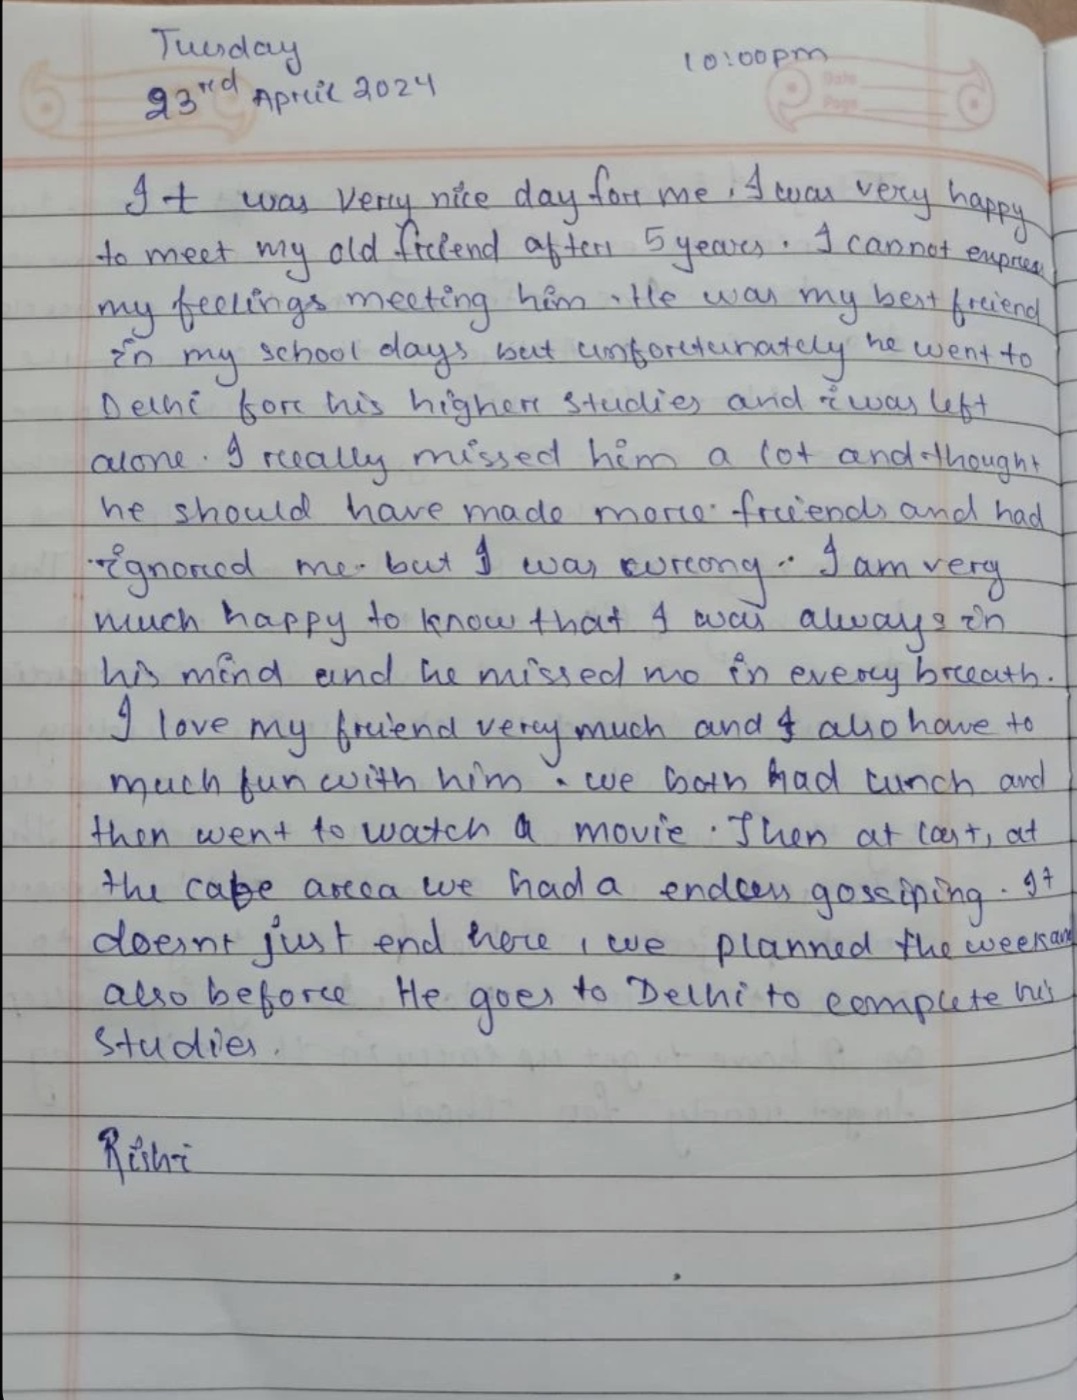 Tuesday
10:00pm
23rd April 2024
Date
Page
It was very nice day for me. I was very happy
to meet my old friend after 5 years. I cannot express
my feelings meeting him. He was my best friend
in my school days but unfortunately he went to
Delhi for his higher studies and i was left
alone. I really missed him a lot and thought
he should have made more friends and had
ignored me. but I was wrong. I am very
much happy to know that I was always in
his mind and he missed me in every breath.
I love my friend very much and I also have to
much fun with him. we both had lunch and
then went to watch a movie. Then at last, at
the cafe area we had a endless gossiping. It
doesnt just end here, we planned the
also before He goes to Delhi to complete his
studies.
Rishi